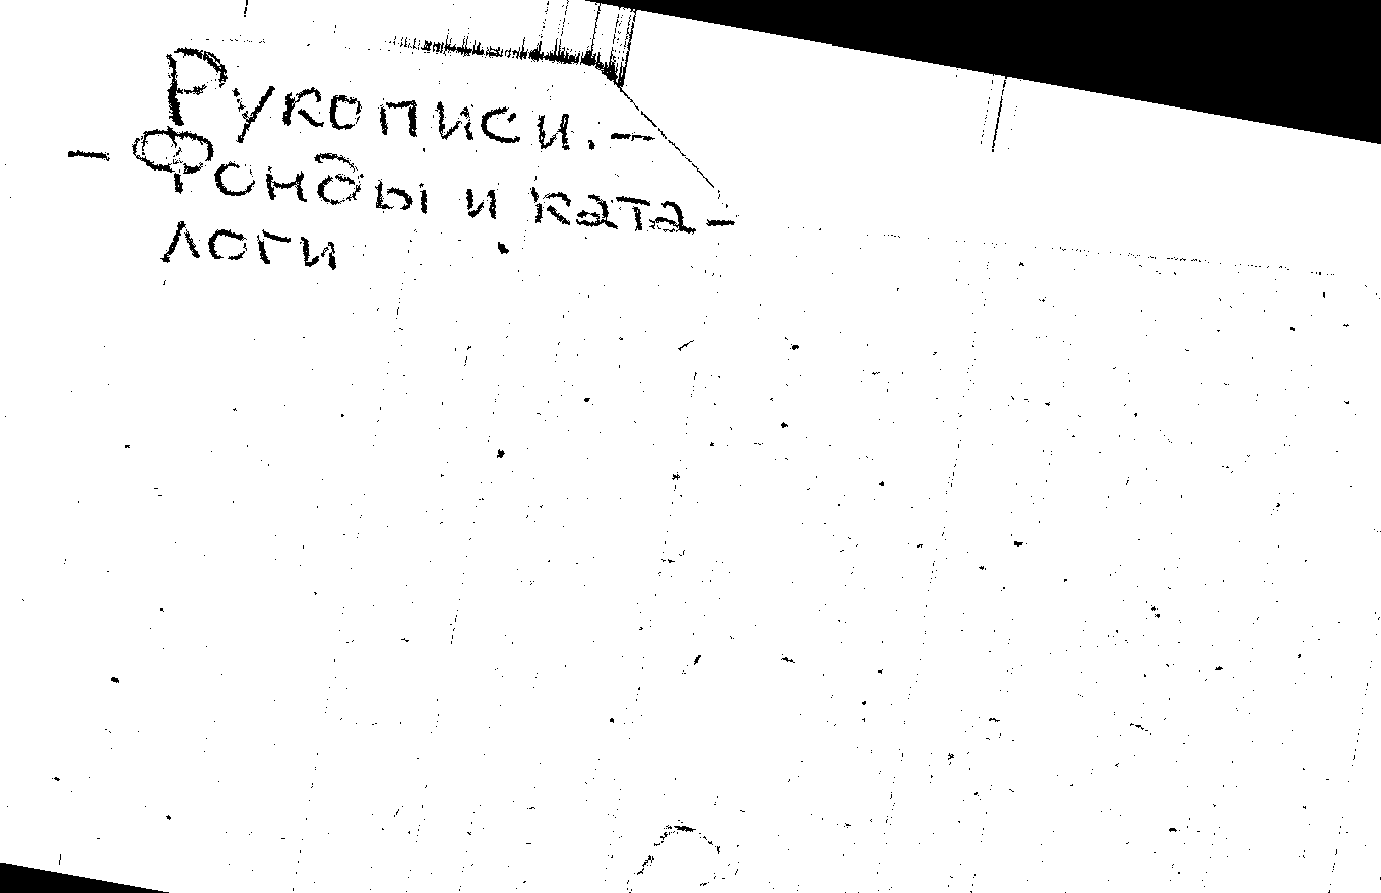 Рукописи. –
– Фонды и ката-
логи